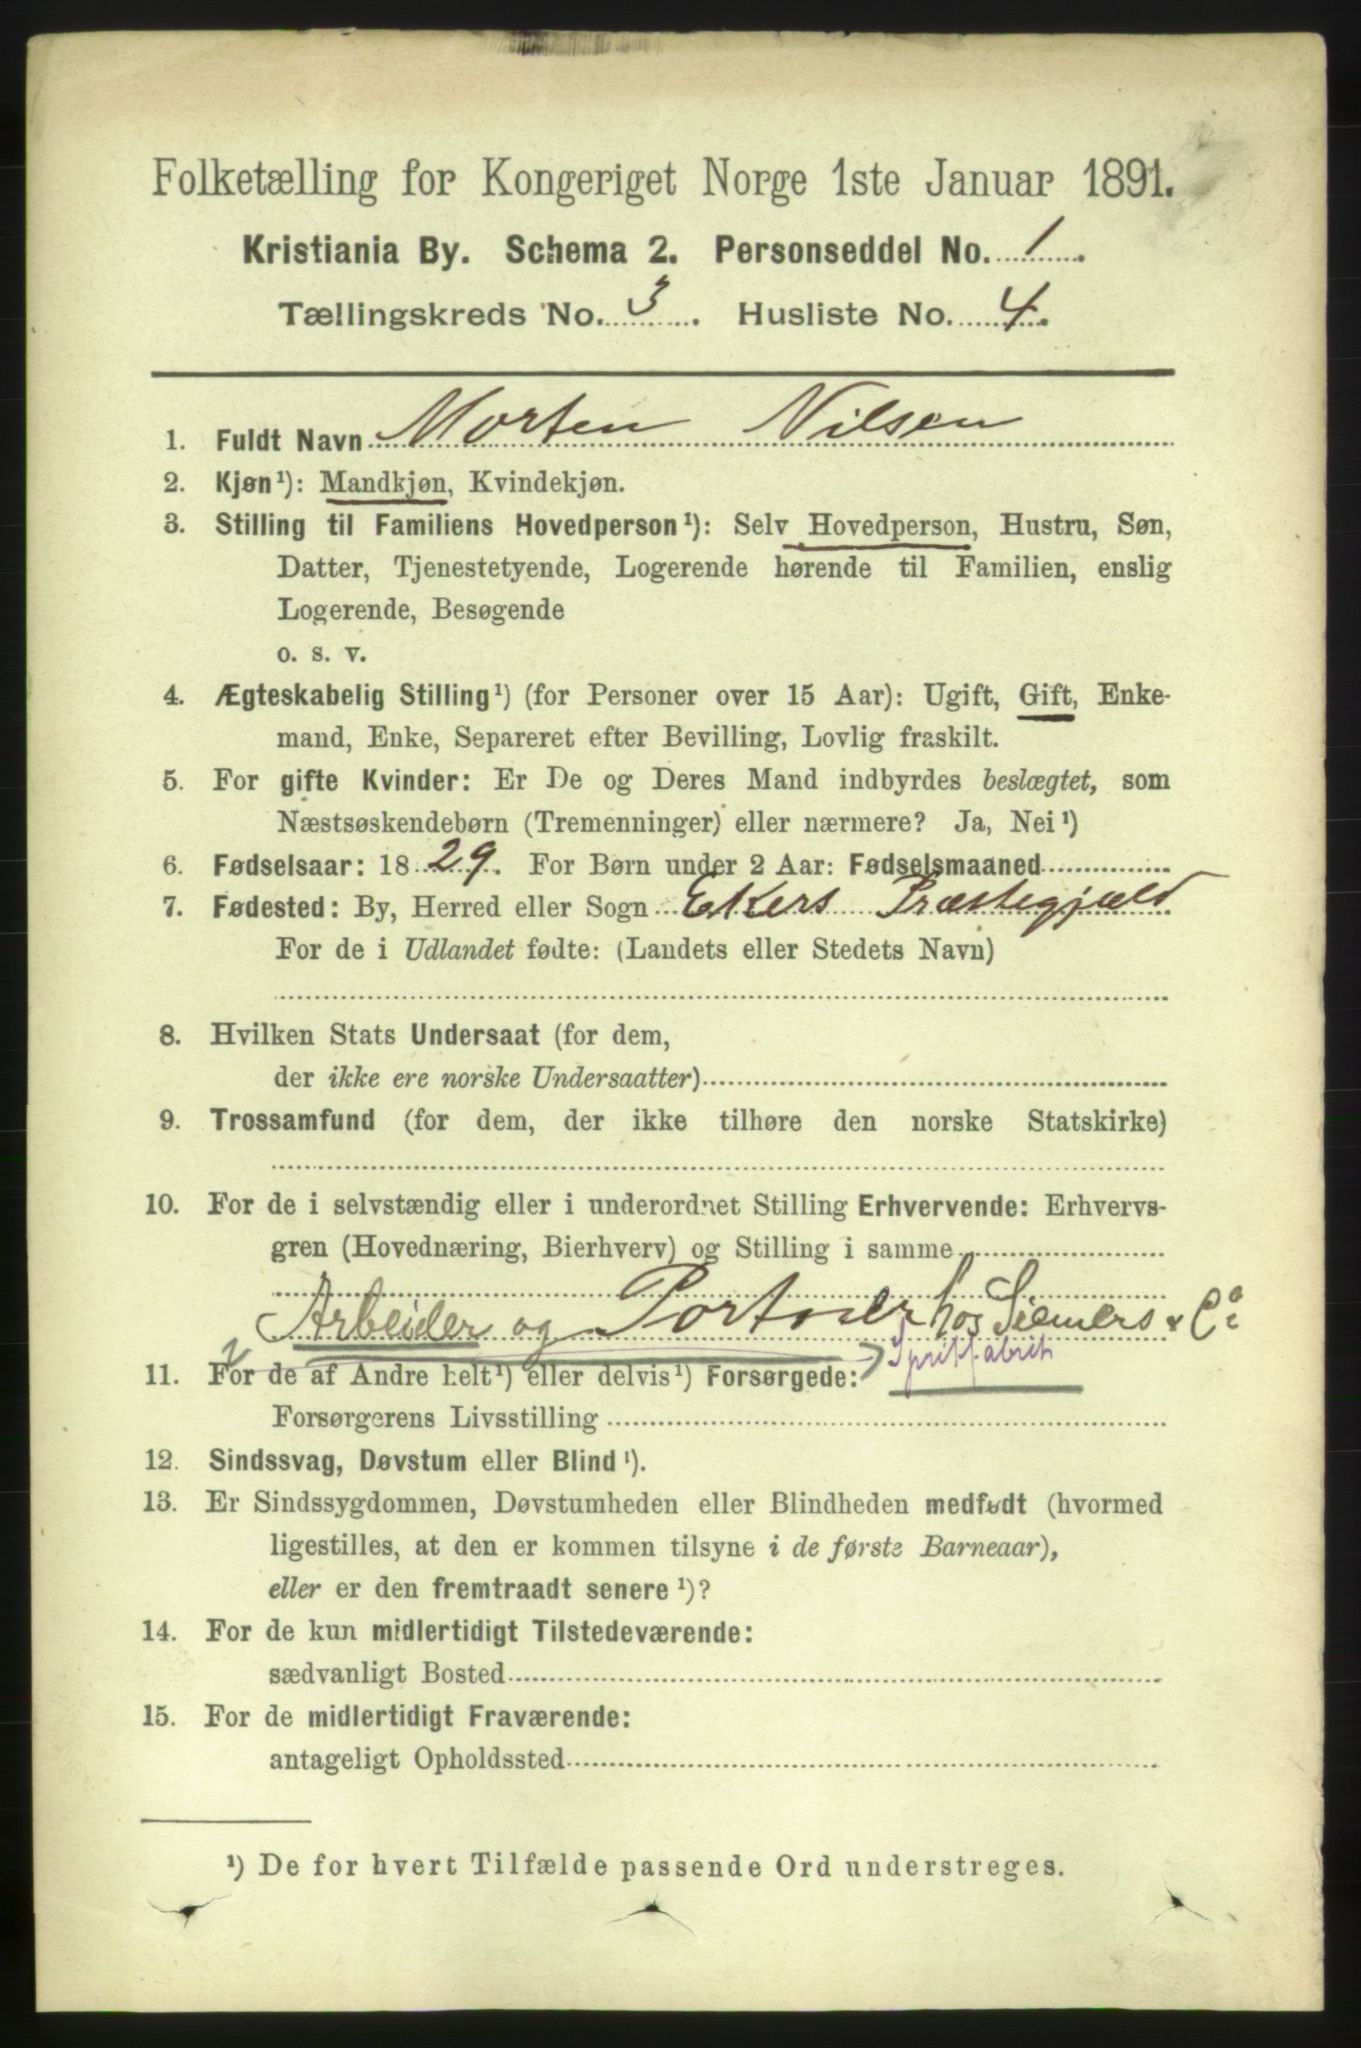 Folketælling for Kongeriget Norge 1ste Januar 1891.
Kristiania By. Schema 2. Personseddel No. 1.
Tællingskreds No. 3. Husliste No. 4.
1. Fuldt Navn Morten Nilsen
2. Kjøn¹): Mandkjøn, Kvindekjøn.
3. Stilling til Familiens Hovedperson¹): Selv Hovedperson, Hustru, Søn,
Datter, Tjenestetyende, Logerende hørende til Familien, enslig
Logerende, Besøgende
o. s. v.
4. Ægteskabelig Stilling¹) (for Personer over 15 Aar): Ugift, Gift, Enke-
mand, Enke, Separeret efter Bevilling, Lovlig fraskilt.
5. For gifte Kvinder: Er De og Deres Mand indbyrdes beslægtet, som
Næstsøskendebørn (Tremenninger) eller nærmere? Ja, Nei¹)
6. Fødselsaar: 1829. For Børn under 2 Aar: Fødselsmaaned
7. Fødested: By, Herred eller Sogn Ekers Præstegjæld
For de i Udlandet fødte: (Landets eller Stedets Navn)
8. Hvilken Stats Undersaat (for dem,
der ikke ere norske Undersaatter)
9. Trossamfund (for dem, der ikke tilhøre den norske Statskirke)
10. For de i selvstændig eller i underordnet Stilling Erhvervende: Erhvervs-
gren (Hovednæring, Bierhverv) og Stilling i samme
Arbeider og Portner hos Siemers & Co
Spritfabrik
11. For de af Andre helt¹) eller delvis¹) Forsørgede:
Forsørgerens Livsstilling
12. Sindssvag, Døvstum eller Blind¹).
13. Er Sindssygdommen, Døvstumheden eller Blindheden medfødt (hvormed
ligestilles, at den er kommen tilsyne i de første Barneaar),
eller er den fremtraadt senere¹)?
14. For de kun midlertidigt Tilstedeværende:
sædvanligt Bosted
15. For de midlertidigt Fraværende:
antageligt Opholdssted
¹) De for hvert Tilfælde passende Ord understreges.